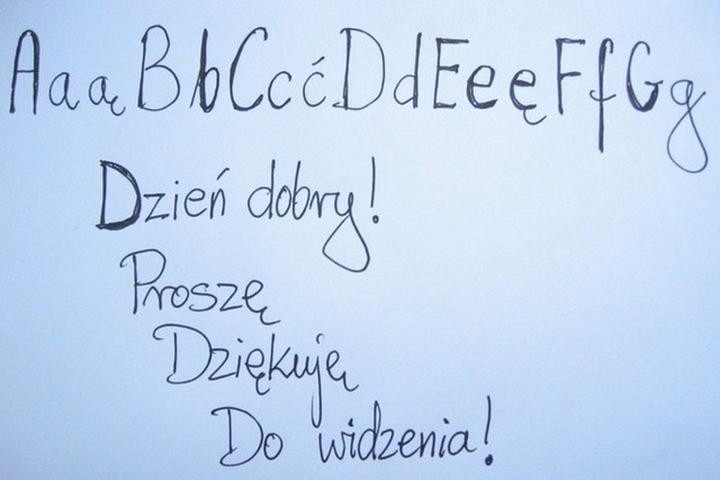 AaąBbCcćDdEeęFfGg
Dzień dobry!
Proszę
Dziękuję
Do widzenia!